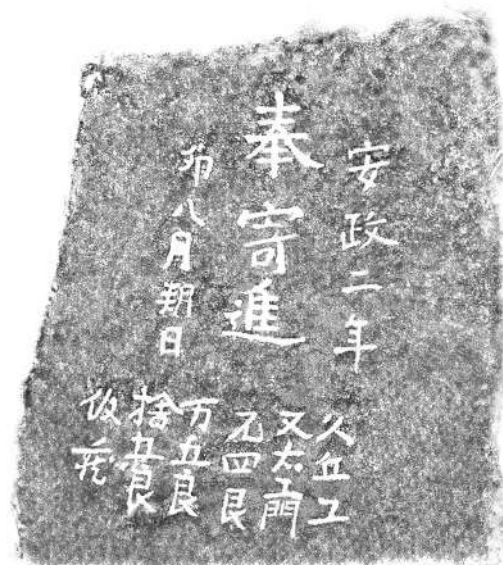 安政二年
奉寄進
卯八月朔日
久丘工
又太工門
元四良
万五良
捨五良